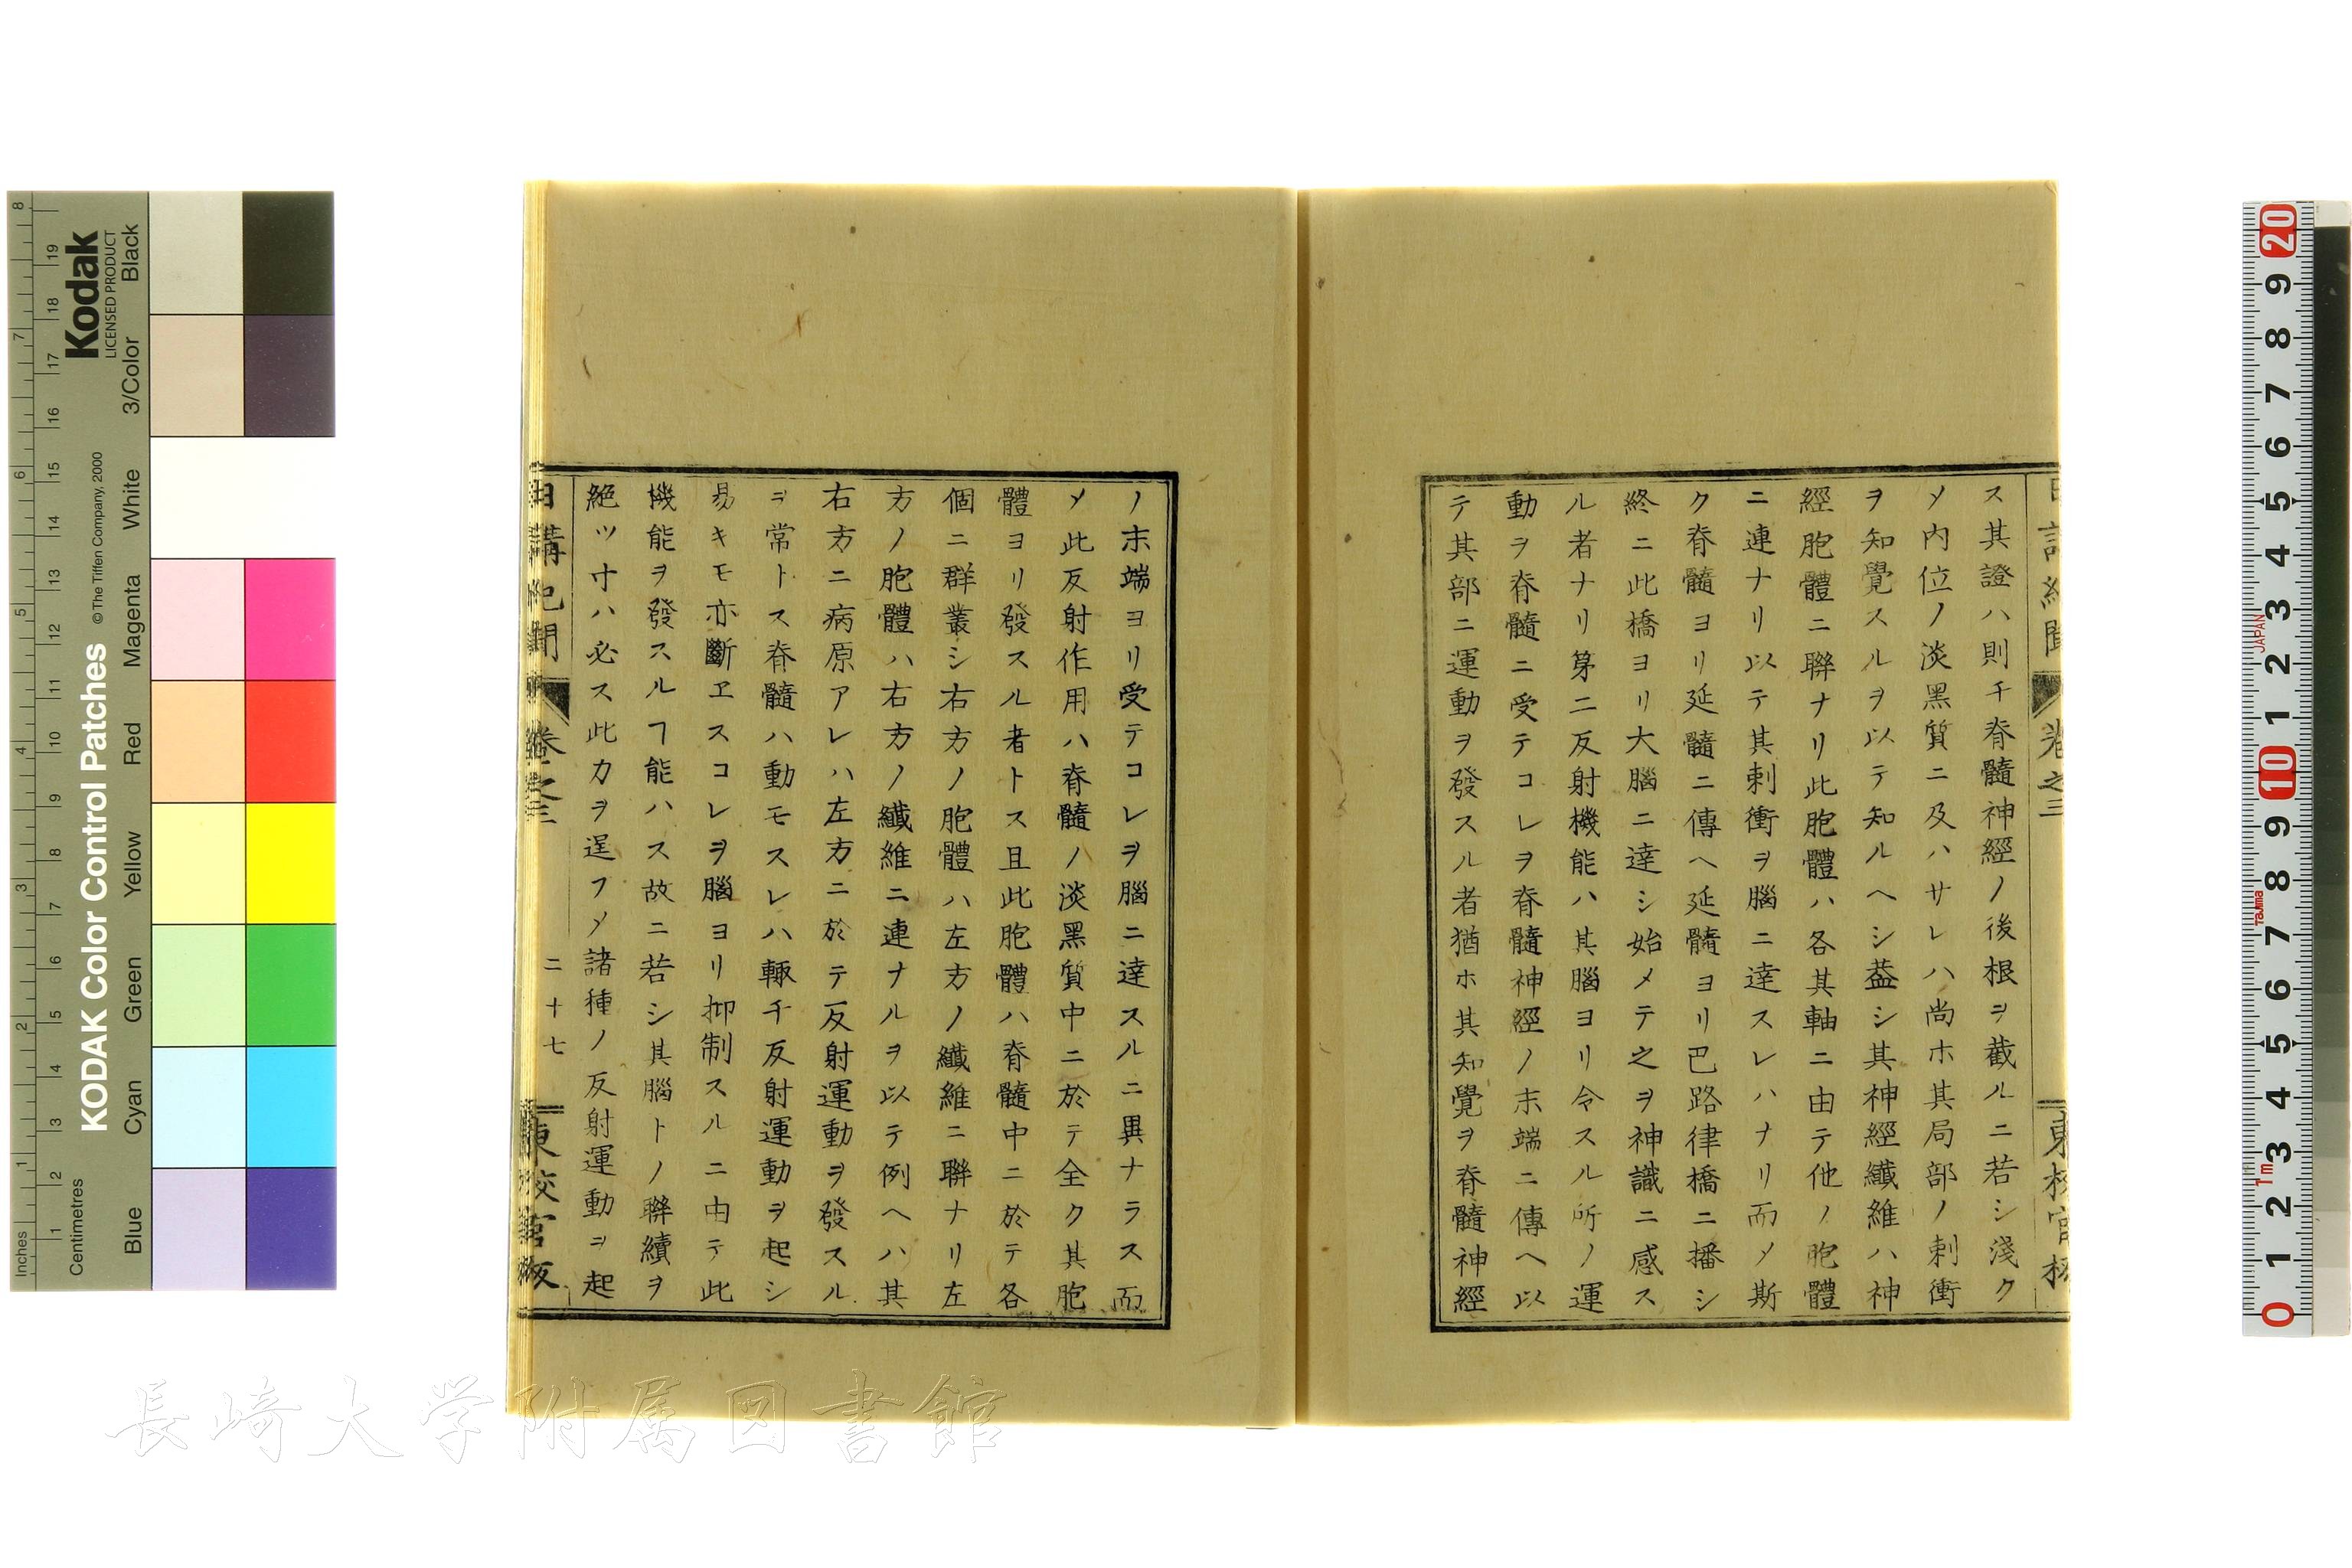 日講紀聞 卷之三 東校官板
ス其證ハ則チ脊髓神經ノ後根ヲ截ルニ若シ淺ク
メ内位ノ淡黑質ニ及ハサレハ尚ホ其局部ノ刺衝
ヲ知覺スルヲ以テ知ルヘシ葢シ其神經纎維ハ神
經胞體ニ聯ナリ此胞體ハ各其軸ニ由テ他ノ胞體
ニ連ナリ以テ其刺衝ヲ腦ニ達スレハナリ而メ斯
ク脊髓ヨリ延髓ニ傳ヘ延髓ヨリ巴路律橋ニ播シ
終ニ此橋ヨリ大腦ニ達シ始メテ之ヲ神識ニ感ス
ル者ナリ第二反射機能ハ其腦ヨリ令スル所ノ運
動ヲ脊髓ニ受テコレヲ脊髓神經ノ末端ニ傳ヘ以
テ其部ニ運動ヲ發スル者猶ホ其知覺ヲ脊髓神經
ノ末端ヨリ受テコレヲ腦ニ達スルニ異ナラス而
メ此反射作用ハ脊髓ノ淡黑質中ニ於テ全ク其胞
體ヨリ發スル者トス且此胞體ハ脊髓中ニ於テ各
個ニ群叢シ右方ノ胞體ハ左方ノ纎維ニ聯ナリ左
方ノ胞體ハ右方ノ纎維ニ連ナルヲ以テ例ヘハ其
右方ニ病原アレハ左方ニ於テ反射運動ヲ發スル
ヲ常トス脊髓ハ動モスレハ輙チ反射運動ヲ起シ
易キモ亦斷ヱスコレヲ腦ヨリ抑制スルニ由テ此
機能ヲ發スルヿ能ハス故ニ若シ其腦トノ聯續ヲ
絕ツ寸ハ必ス此力ヲ逞フメ諸種ノ反射運動ヲ起
日講紀聞 卷之三 二十七 東校官板
KODAK Color Control Patches
© The Tiffen Company, 2000
Kodak
LICENSED PRODUCT
Inches 1 2 3 4 5 6 7 8
Centimetres 1 2 3 4 5 6 7 8 9 10 11 12 13 14 15 16 17 18 19
Blue Cyan Green Yellow Red Magenta White 3/Color Black
20 9 8 7 6 5 4 3 2 1 10 9 8 7 6 5 4 3 2 1 0
JAPAN
Tajima
1m
長崎大学附属図書館